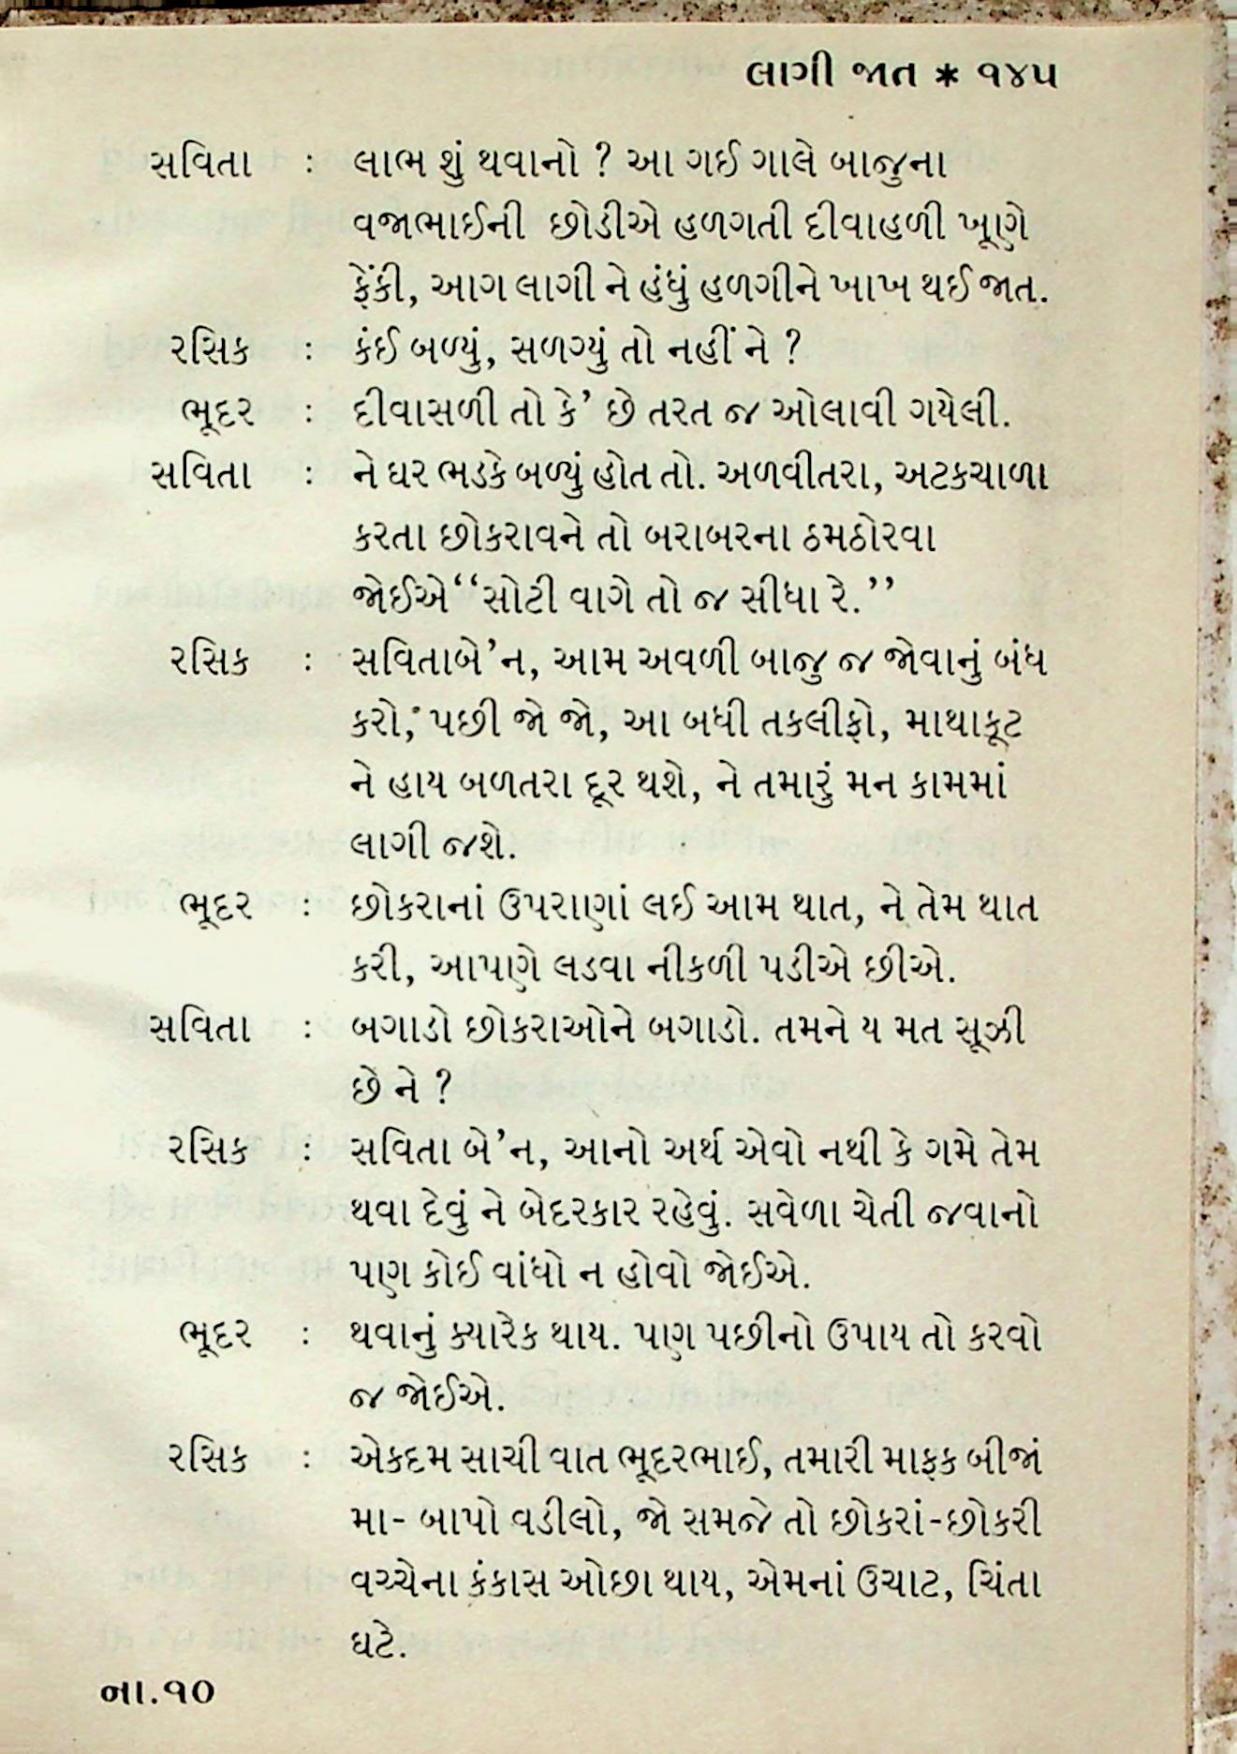 લાગી જાત * ૧૪૫
સવિતા : લાભ શું થવાનો ? આ ગઈ ગાલે બાજુના
વજાભાઈની છોડીએ હળગતી દીવાહળી ખૂણે
ફેંકી, આગ લાગી ને હંધું હળગીને ખાખ થઈ જાત.
રસિક : કંઈ બળ્યું, સળગ્યું તો નહીં ને ?
ભૂદર : દીવાસળી તો કે’ છે તરત જ ઓલાવી ગયેલી.
સવિતા : ને ઘર ભડકે બળ્યું હોત તો. અળવીતરા, અટકચાળા
કરતા છોકરાવને તો બરાબરના ઠમઠોરવા
જોઈએ“સોટી વાગે તો જ સીધા રે.”
રસિક : સવિતાબે’ન, આમ અવળી બાજુ જ જોવાનું બંધ
કરો, પછી જો જો, આ બધી તકલીફો, માથાકૂટ
ને હાય બળતરા દૂર થશે, ને તમારું મન કામમાં
લાગી જશે.
ભૂદર : છોકરાનાં ઉપરાણાં લઈ આમ થાત, ને તેમ થાત
કરી, આપણે લડવા નીકળી પડીએ છીએ.
સવિતા : બગાડો છોકરાઓને બગાડો. તમને ય મત સૂઝી
છે ને ?
રસિક : સવિતા બે’ન, આનો અર્થ એવો નથી કે ગમે તેમ
થવા દેવું ને બેદરકાર રહેવું. સવેળા ચેતી જવાનો
પણ કોઈ વાંધો ન હોવો જોઈએ.
ભૂદર : થવાનું ક્યારેક થાય. પણ પછીનો ઉપાય તો કરવો
જ જોઈએ.
રસિક : એકદમ સાચી વાત ભૂદરભાઈ, તમારી માફક બીજાં
મા- બાપો વડીલો, જો સમજે તો છોકરાં-છોકરી
વચ્ચેના કંકાસ ઓછા થાય, એમનાં ઉચાટ, ચિંતા
ઘટે.
ના.૧૦